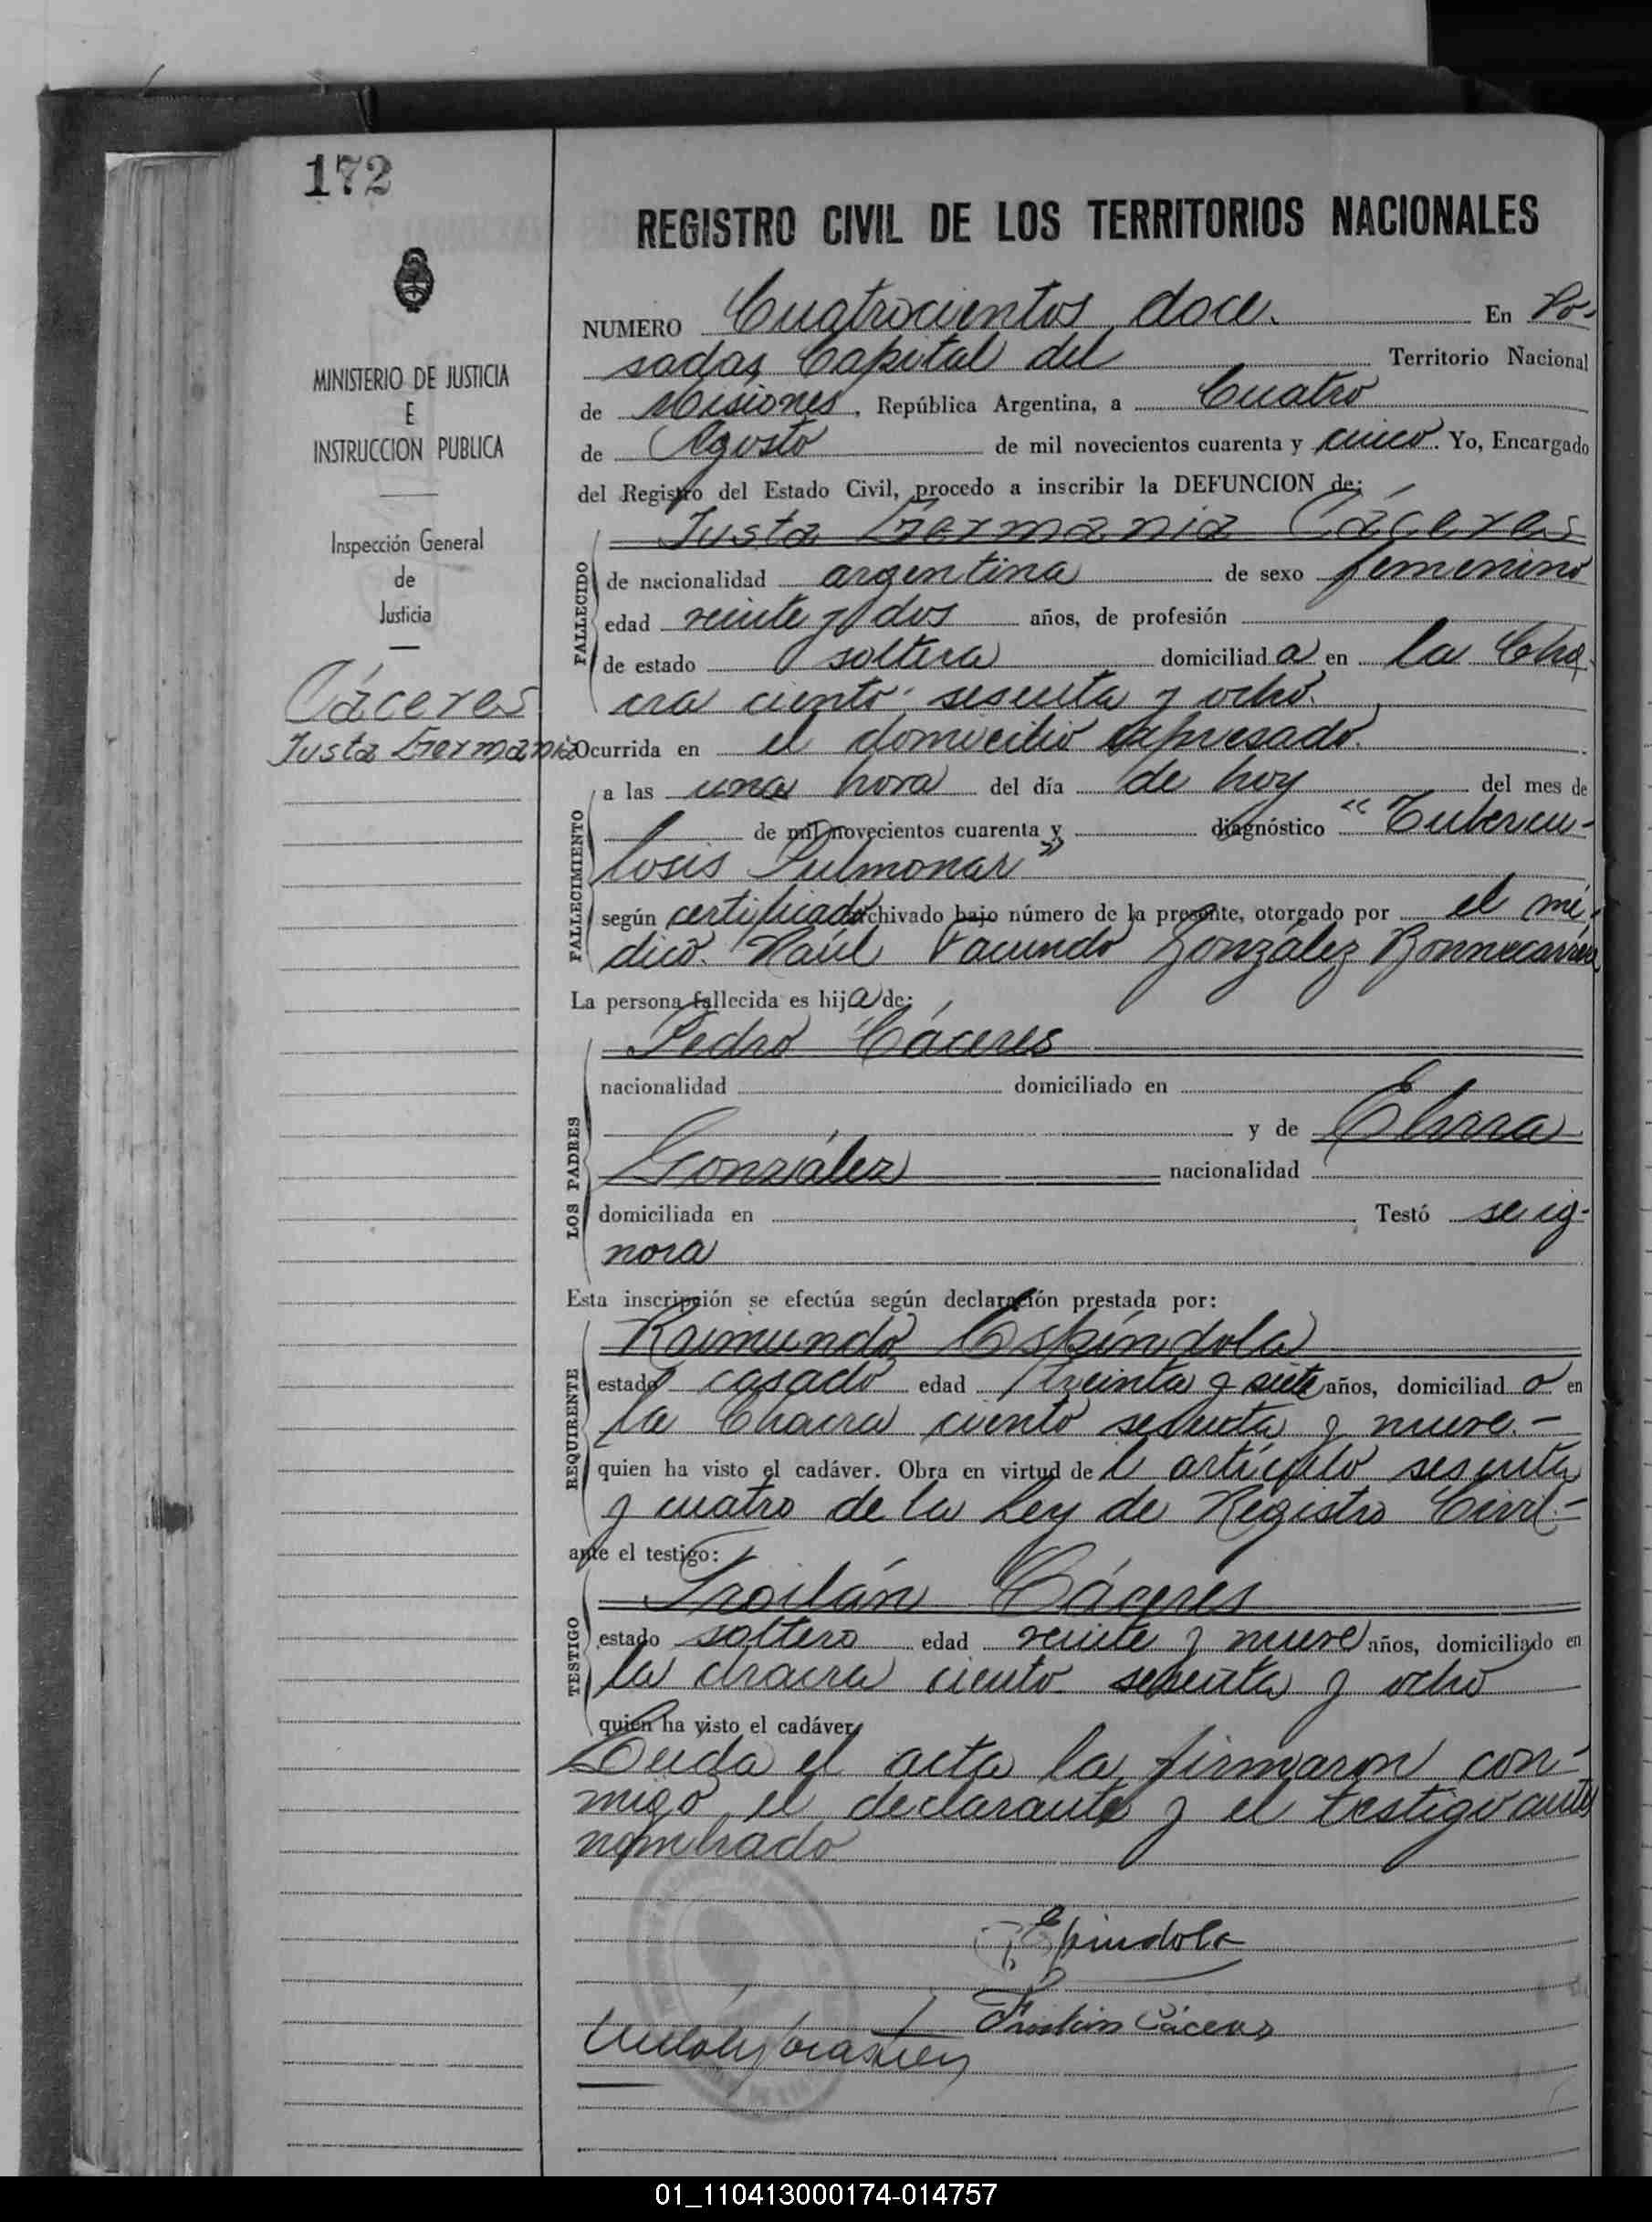 172
REGISTRO CIVIL DE LOS TERRITORIOS NACIONALES
MINISTERIO DE JUSTICIA
E
INSTRUCCION PUBLICA
Inspección General
de
Justicia
Cáceres
Justa Germania
NUMERO Cuatrocientos doce. En Po-
sadas Capital del Territorio Nacional
de Misiones, República Argentina, a Cuatro
de Agosto de mil novecientos cuarenta y cinco. Yo, Encargado
del Registro del Estado Civil, procedo a inscribir la DEFUNCION de:
FALLECIDO
Justa Germania Cáceres
de nacionalidad argentina de sexo femenino
edad veinte y dos años, de profesión
de estado soltera domiciliada en la Cha
cra ciento sesenta y ocho.
Ocurrida en el domicilio expresado.
FALLECIMIENTO
a las una hora del día de hoy del mes de
de mil novecientos cuarenta y diagnóstico "Tubercu-
losis Pulmonar"
según certificado archivado bajo número de la presente, otorgado por el mé-
dico. Raúl Facundo González Bonnecarrère
La persona fallecida es hija de:
LOS PADRES
Pedro Cáceres
nacionalidad domiciliado en
y de
González nacionalidad
domiciliada en Testó se ig-
nora
Esta inscripción se efectúa según declaración prestada por:
REQUIRENTE
Raimundo Espíndola
estado casado edad treinta y siete años, domiciliado en
la Chacra ciento sesenta y nueve.-
quien ha visto el cadáver. Obra en virtud del artículo sesenta
y cuatro de la Ley de Registro Civil.-
ante el testigo:
TESTIGO
Froilán Cáceres
estado soltero edad veinte y nueve años, domiciliado en
la chacra ciento sesenta y ocho
quien ha visto el cadáver
Leída el acta la firmaron con-
migo el declarante y el testigo ante
nombrado
Espindola
Froilán Cáceres
01_110413000174-014757